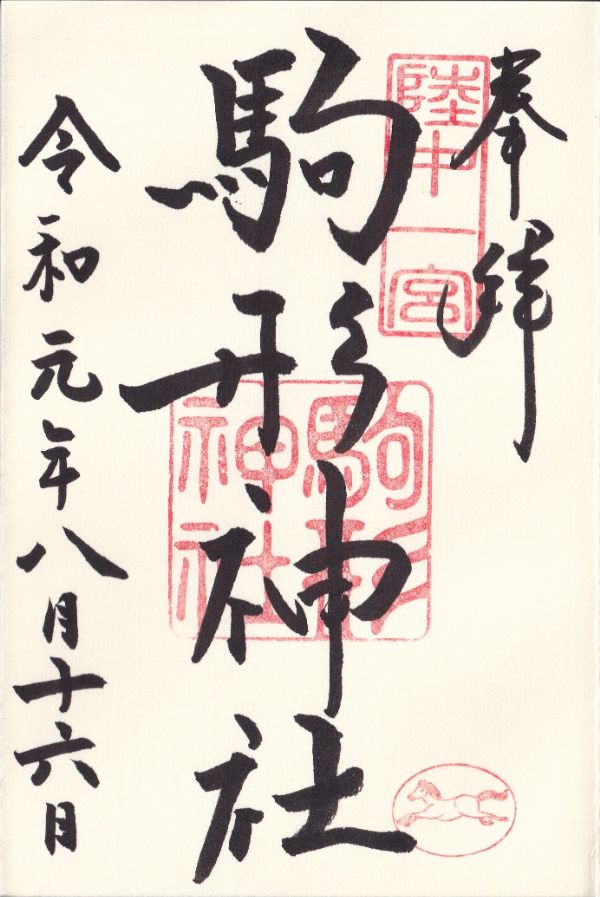 奉拝
陸中一宮
駒形神社
駒形神社
令和元年八月十六日